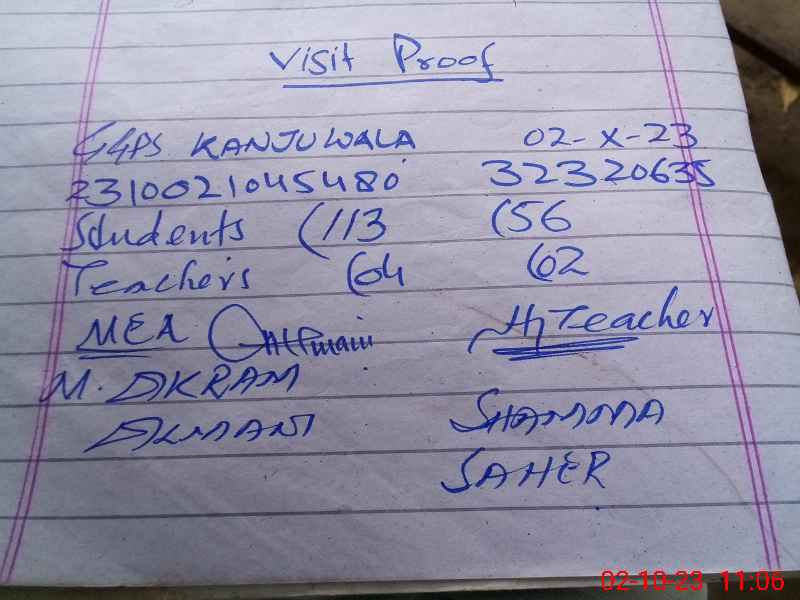 Visit Proof
GGPS KANJUWALA 02-X-23
2310021045480 32320635
Students (113 (56
Teachers (04 (02
MEA H/Teacher
M. AKRAM
SHAMMA
SAHER
02-10-23 11:06